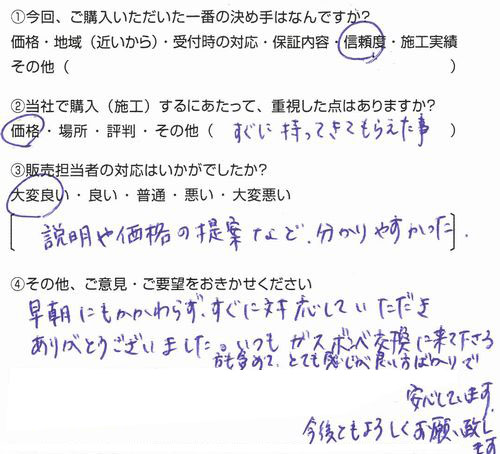 ①今回、ご購入いただいた一番の決め手はなんですか?
価格・地域（近いから）・受付時の対応・保証内容・信頼度・施工実績
その他（　　　　　　　　　　　　　　　　　　　　　　　　）
②当社で購入（施工）するにあたって、重視した点はありますか?
価格・場所・評判・その他（ すぐに持ってきてもらえた事 ）
③販売担当者の対応はいかがでしたか?
大変良い・良い・普通・悪い・大変悪い
説明や価格の提案など、分かりやすかった。
④その他、ご意見・ご要望をおきかせください
早朝にもかかわらず、すぐに対応していただき
ありがとうございました。いつもガスボンベ交換に来て下さる
方も含めて、とても感じが良い方ばかりで
安心しています。
今後ともよろしくお願い致し
ます